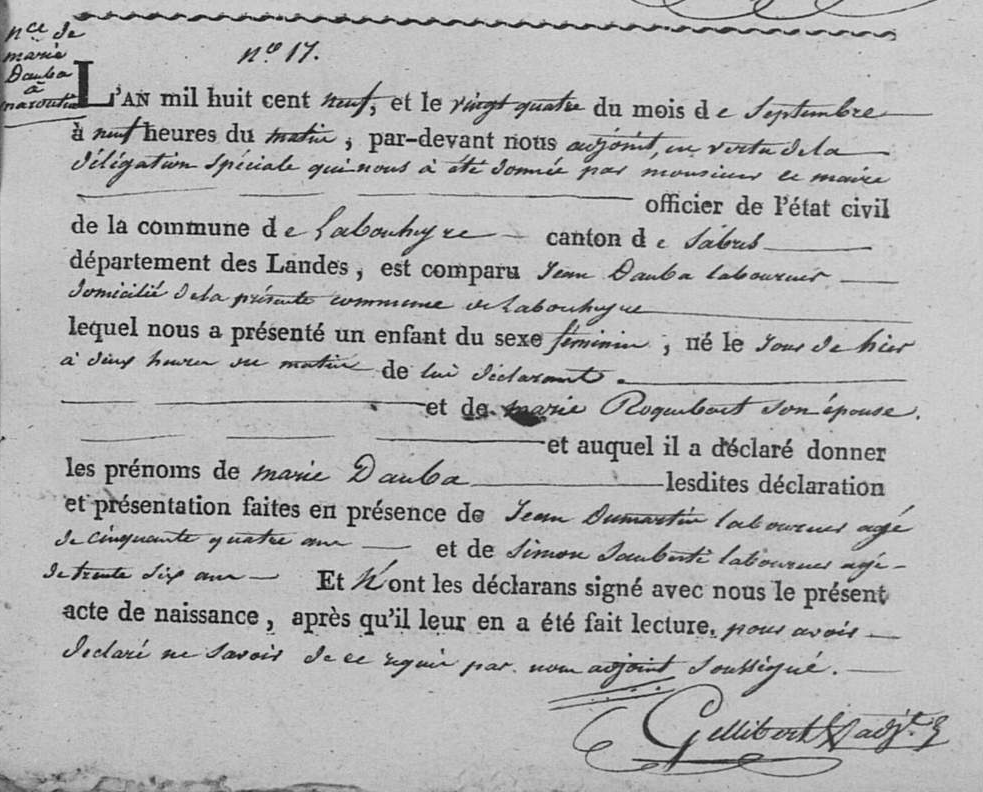 nce de
marie
Dauba
à
n° 17.
L'AN mil huit cent neuf, et le vingt quatre du mois de Septembre
à neuf heures du matin, par-devant nous adjoint, en vertu de la
délégation spéciale qui nous à été donnée par monsieur le maire
officier de l'état civil
de la commune de Labouheyre canton de Sabres
département des Landes, est comparu Jean Dauba laboureur
domicilié de la présente commune de Labouheyre
lequel nous a présenté un enfant du sexe féminin, né le Jour de hier
à deux heures du matin de lui déclarant
et de marie Roquebort son épouse.
et auquel il a déclaré donner
les prénoms de marie Dauba lesdites déclaration
et présentation faites en présence de Jean Dumartin laboureur agé
de cinquante quatre ans et de Simon laboureur agé
de trente six ans Et N'ont les déclarans signé avec nous le présent
acte de naissance, après qu'il leur en a été fait lecture, pour avoir
declaré ne savoir de ce par nous adjoint soussigné.
Gellibert adjt.